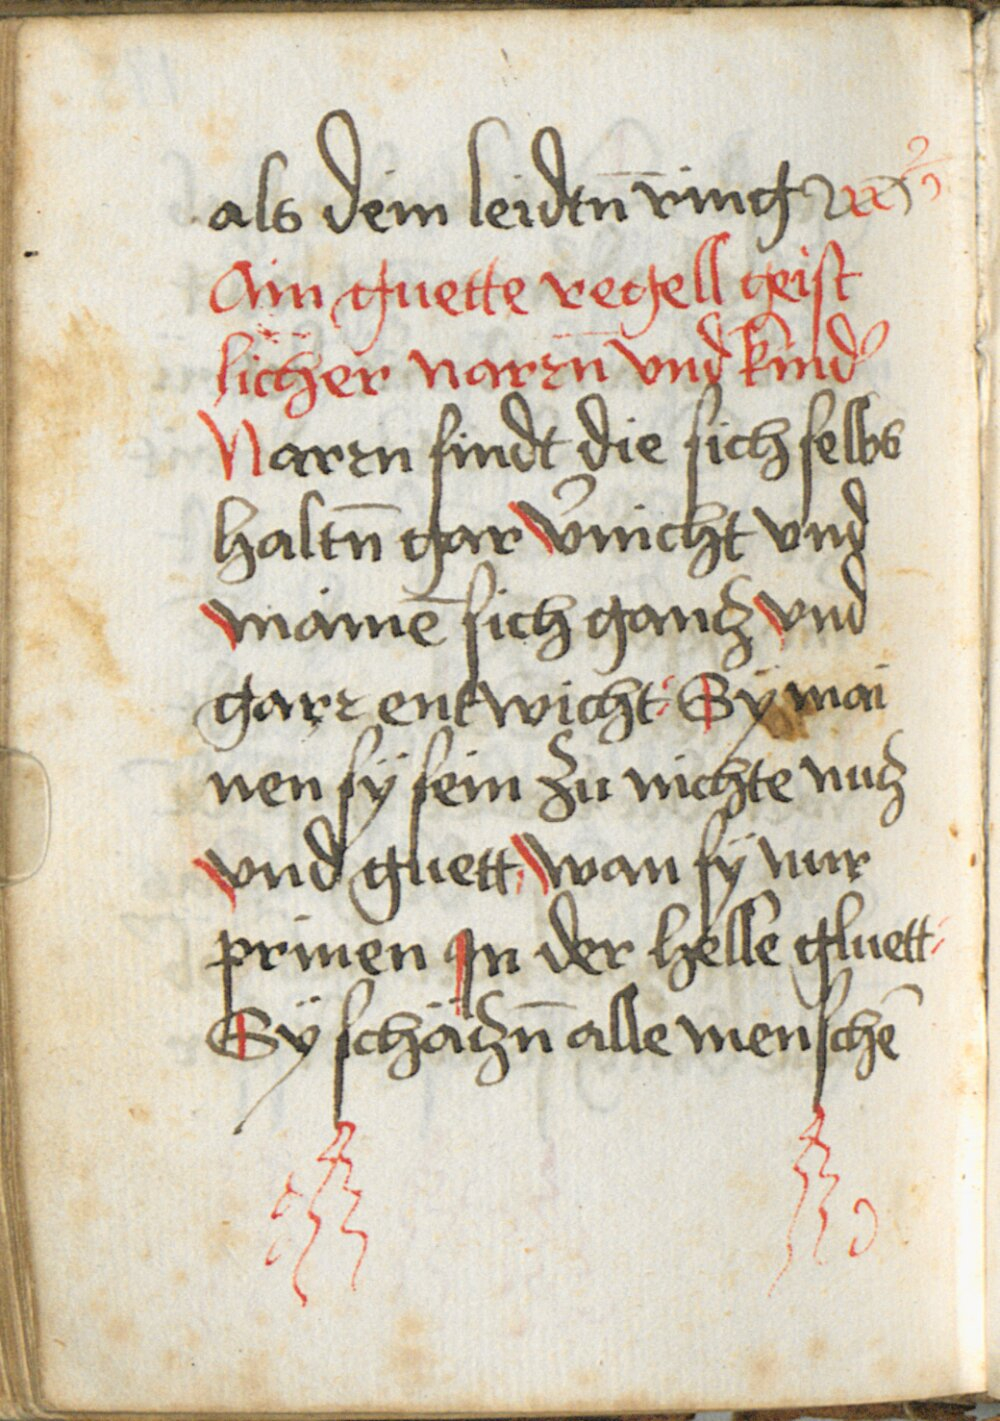 als dein leidtn̄ ring
Ain guette regell geist
licher narrn̄ vnd kind᷑
Narrn sindt die sich selbs
haltn̄ gar v̄nicht vnd
mainē sich gantz vnd
garr entwicht: Sÿ mai
nen sÿ sein zu nichte nutz
vnd guett: wan sÿ nur
prinen In der helle gluett:
Sÿ schätzn̄ alle menschē